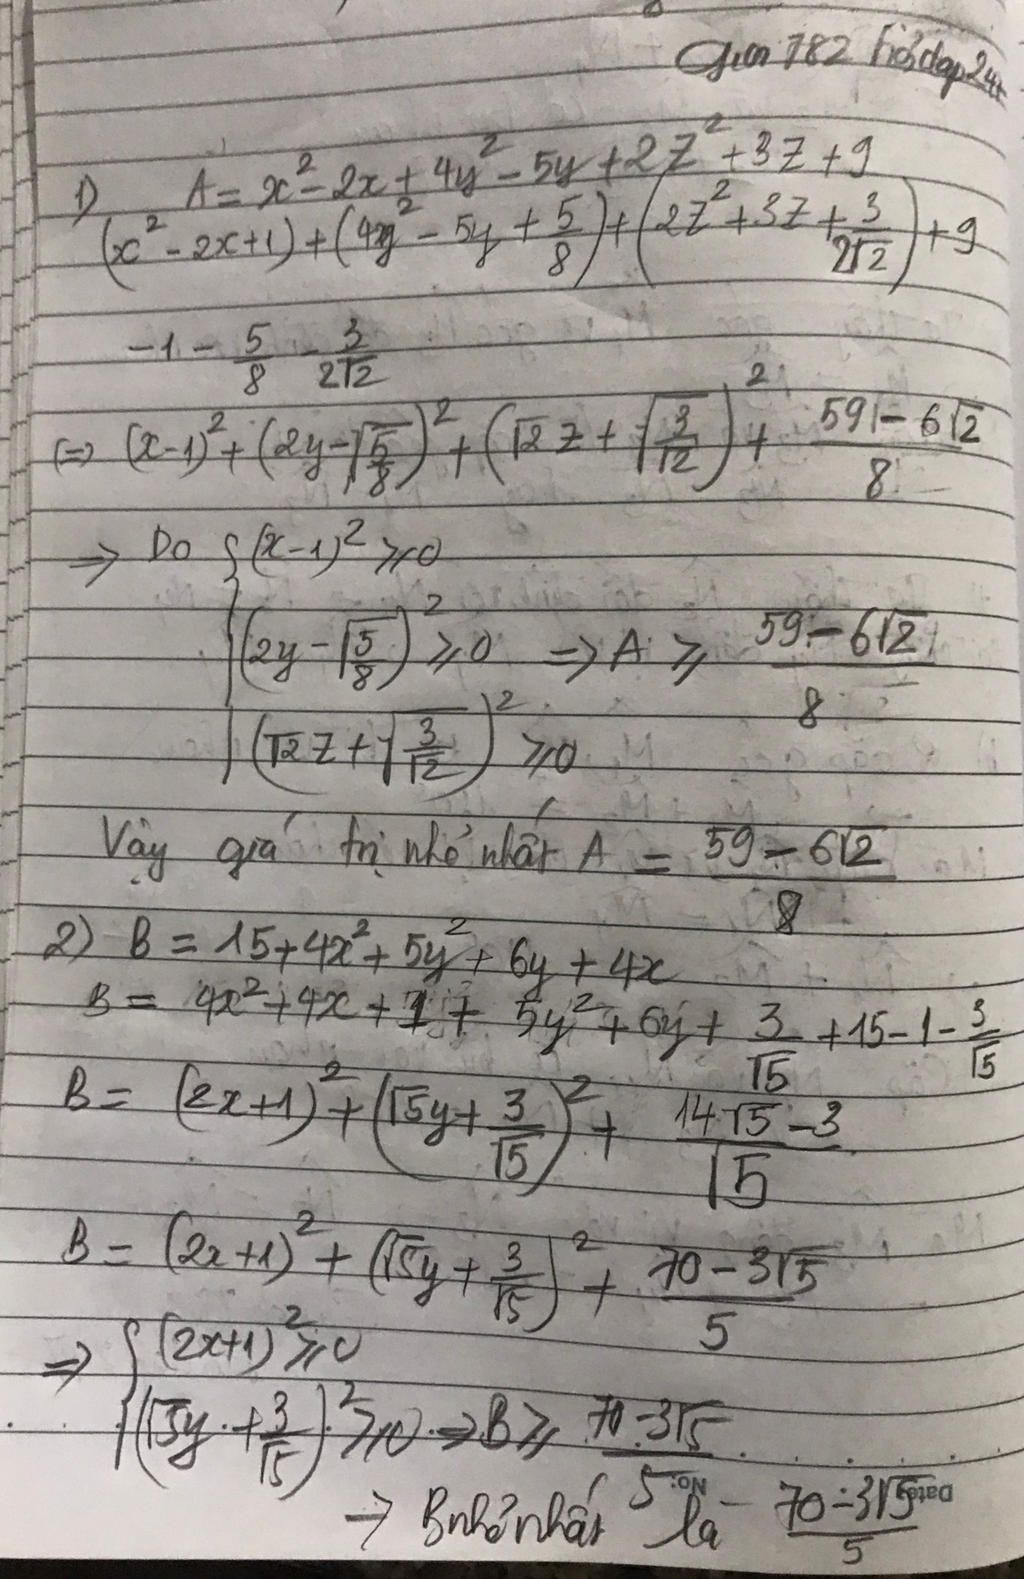 Gun 782 hỏi đáp 24h
1) A = x² - 2x + 4y² - 5y + 2Z² + 3Z + 9
(x² - 2x + 1) + (4y² - 5y + 5/8) + (2Z² + 3Z + 3/2√2) + 9
-1 - 5/8 - 3/2√2
(=) (x-1)² + (2y - √5/8)² + (√2 Z + √3/√2)² + 59 - 6√2/8
=> Do { (x-1)² ≥ 0
(2y - √5/8)² ≥ 0 => A ≥ 59 - 6√2/8
(√2 Z + √3/√2)² ≥ 0
Vậy giá trị nhỏ nhất A = 59 - 6√2/8
2) B = 15 + 4x² + 5y² + 6y + 4x
B = 4x² + 4x + 1 + 5y² + 6y + 3/√5 + 15 - 1 - 3/√5
B = (2x+1)² + (√5y + 3/√5)² + 14√5 - 3/√5
B = (2x+1)² + (√5y + 3/√5)² + 70 - 3√5/5
=> { (2x+1)² ≥ 0
(√5y + 3/√5)² ≥ 0 => B ≥ 70 - 3√5/5
No:
Date:
→ B nhỏ nhất là 70 - 3√5/5